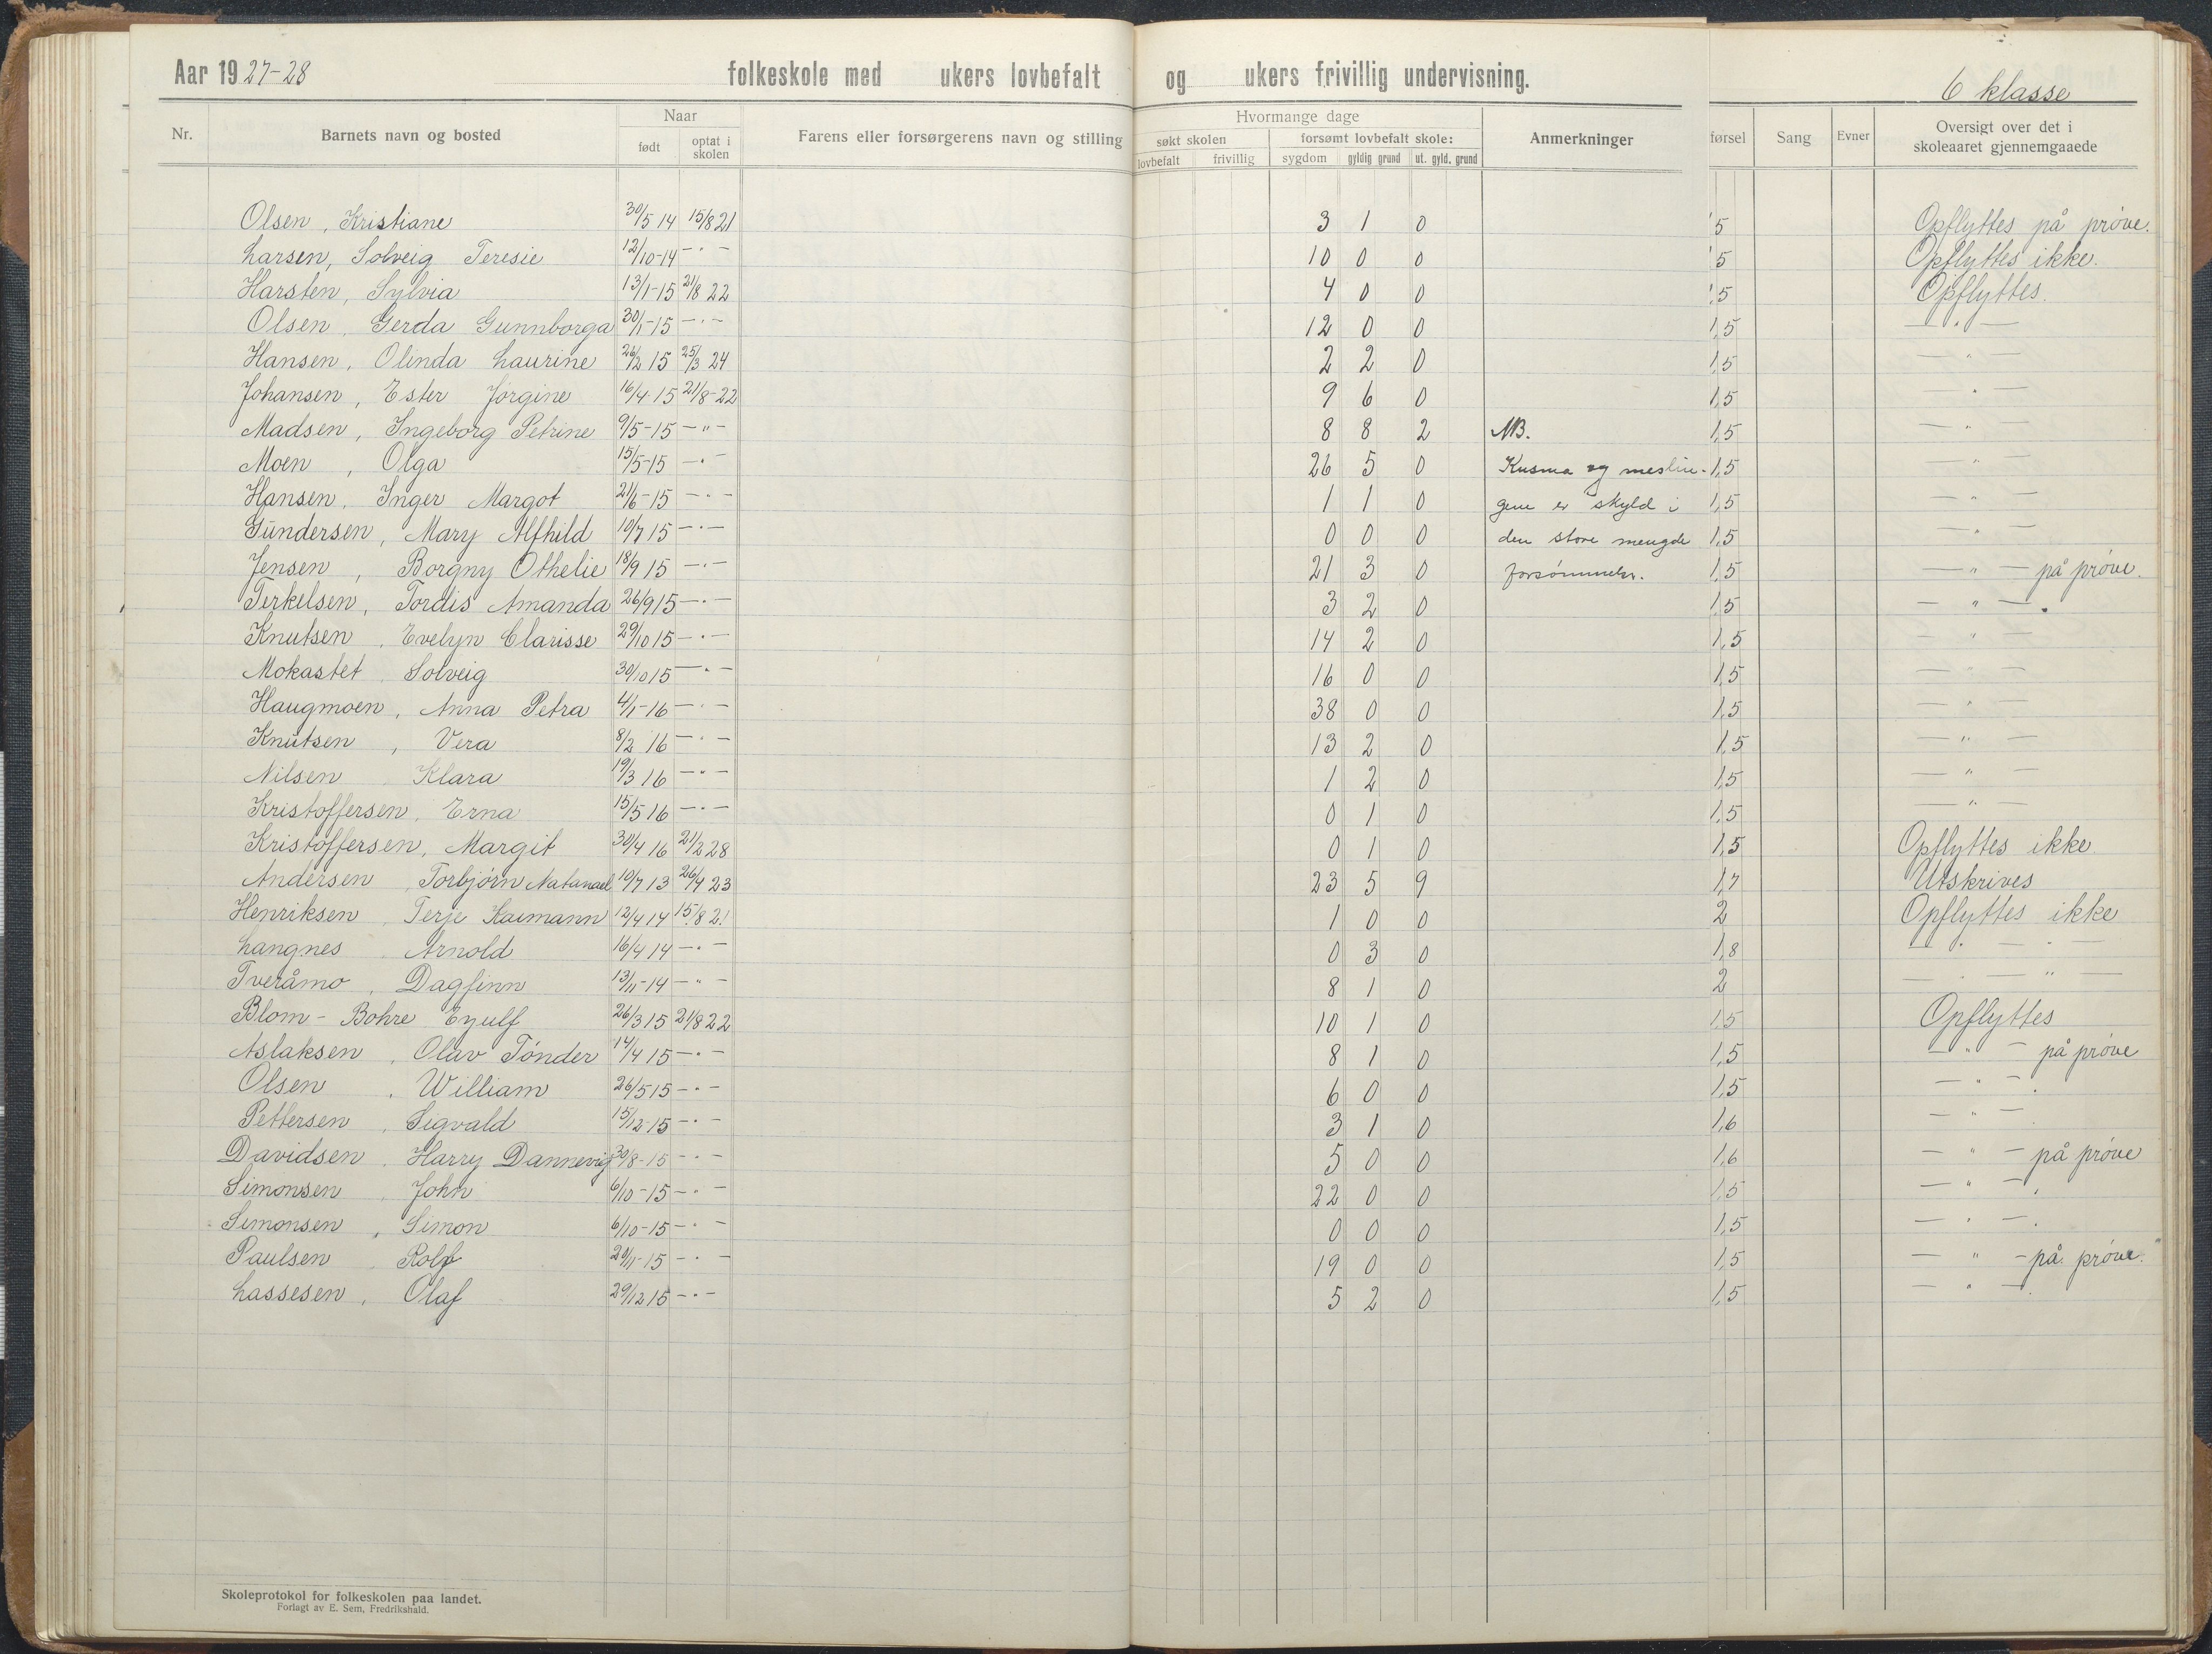 Aar 1927-28 folkeskole med ukers lovbefalt og ukers frivillig undervisning.
6 klasse
Nr. Barnets navn og bosted Naar født optat i skolen Farens eller forsørgerens navn og stilling Hvormange dage søkt skolen lovbefalt frivillig forsømt lovbefalt skole: sygdom gyldig grund ut. gyld. grund Anmerkninger førsel Sang Evner Oversigt over det i skoleaaret gjennemgaaede
Olsen, Kristiane 30/5 14 15/8 21 3 1 0 5 Opflyttes på prøve.
Larsen, Solveig Teresie 12/10-14 -"- 10 0 0 5 Opflyttes ikke.
Harsten, Sylvia 13/1-15 21/8 22 4 0 0 1,5 Opflyttes.
Olsen, Gerda Gunnborga 30/1-15 -"- 12 0 0 1,5 -"-
Hansen, Olinda Laurine 26/2 15 25/3 24 2 2 0 1,5 -"-
Johansen, Ester Jørgine 16/4-15 21/8-22 9 6 0 1,5 -"-
Madsen, Ingeborg Petrine 9/5-15 -"- 8 8 2 NB. 1,5 -"-
Moen, Olga 15/5-15 -"- 26 5 0 Kusma og meslin- 1,5 -"-
Hansen, Inger Margot 21/6-15 -"- 1 1 0 gene er skyld i 1,5 -"-
Gundersen, Mary Alfhild 10/7 15 -"- 0 0 0 den store mengde 1,5 -"-
Jensen, Borgny Othelie 18/9 15 -"- 21 3 0 forsømmelser. 1,5 -"- på prøve.
Terkelsen, Tordis Amanda 26/9 15 -"- 3 2 0 1,5 -"-
Knutsen, Evelyn Clarisse 29/10 15 -"- 14 2 0 1,5 -"-
Mokastet, Solveig 30/10 15 -"- 16 0 0 1,5 -"-
Haugmoen, Anna Petra 4/1-16 -"- 38 0 0 1,5 -"-
Knutsen, Vera 8/2 16 -"- 13 2 0 1,5 -"-
Nilsen, Klara 19/3 16 -"- 1 2 0 1,5 -"-
Kristoffersen, Erna 15/5 16 -"- 0 1 0 1,5 -"-
Kristoffersen, Margit 30/4 16 21/2 28 0 1 0 1,5 Opflyttes ikke
Andersen, Torbjørn Natanael 10/7 13 26/4 23 23 5 9 1,7 Utskrives
Henriksen, Terje Kaimann 12/4 14 15/8 21 1 0 0 2 Opflyttes ikke
Langnes, Arnold 16/4 14 -"- 0 3 0 1,8 -"- -"-
Tveråmo, Dagfinn 13/11-14 -"- 8 1 0 2 -"- -"-
Blom-Bohre Eyulf 26/3 15 21/8 22 10 1 0 1,5 Opflyttes
Aslaksen, Olav Tønder 14/4 15 -"- 8 1 0 1,5 -"- på prøve
Olsen, William 26/5 15 -"- 6 0 0 1,5 -"-
Pettersen, Sigvald 15/12-15 -"- 3 1 0 1,6 -"-
Davidsen, Harry Dannevig 30/8-15 -"- 5 0 0 1,6 -"- på prøve
Simonsen, John 6/10-15 -"- 22 0 0 1,5 -"-
Simonsen, Simon 6/10-15 -"- 0 0 0 1,5 -"-
Paulsen, Rolf 20/11-15 -"- 19 0 0 1,5 -"- på prøve.
Lassesen, Olaf 29/12 15 -"- 5 2 0 1,5 -"-
Skoleprotokol for folkeskolen paa landet.
Forlagt av E. Sem, Fredrikshald.